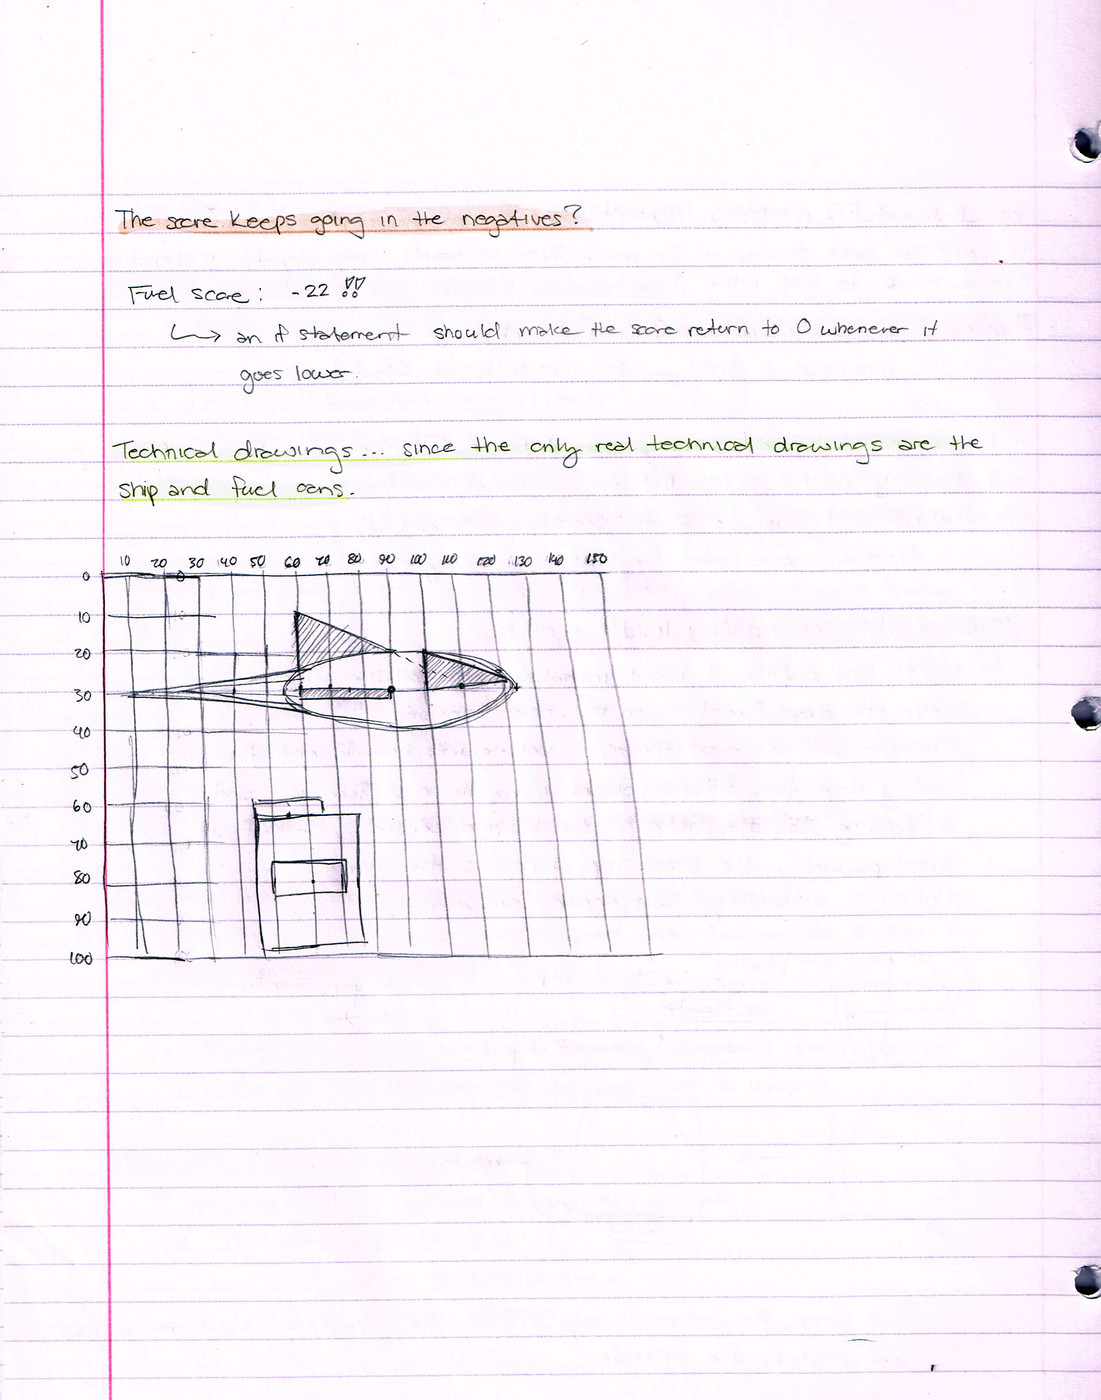 The score keeps going in the negatives?
Fuel score: -22 !!
↳ an if statement should make the score return to 0 whenever it
goes lower.
Technical drawings... since the only real technical drawings are the
ship and fuel cans.
10 20 30 40 50 60 70 80 90 100 110 120 130 140 150
0
10
20
30
40
50
60
70
80
90
100